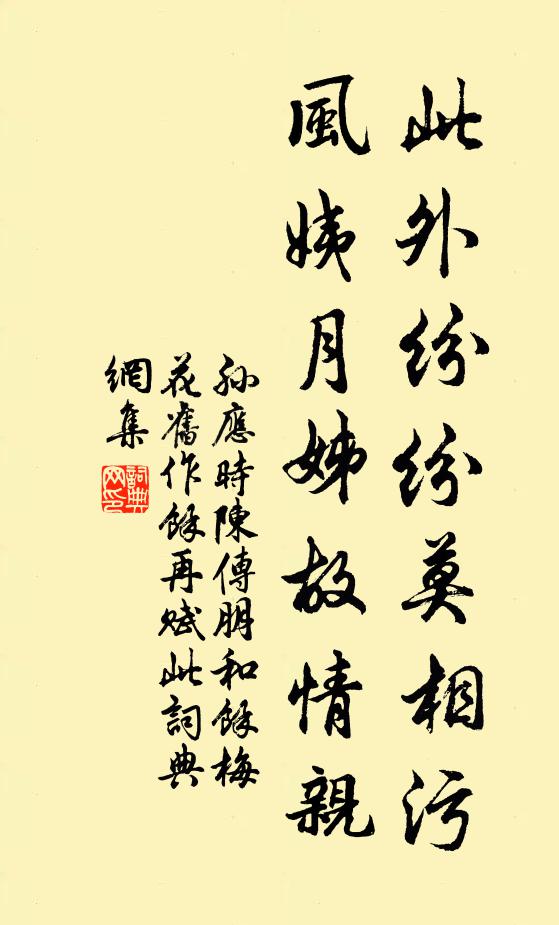 此外紛紛莫相污
風姨月姊故情親
孫應時陳傅朋和餘梅
花舊作餘再賦此詞典
網集
詞典
网印